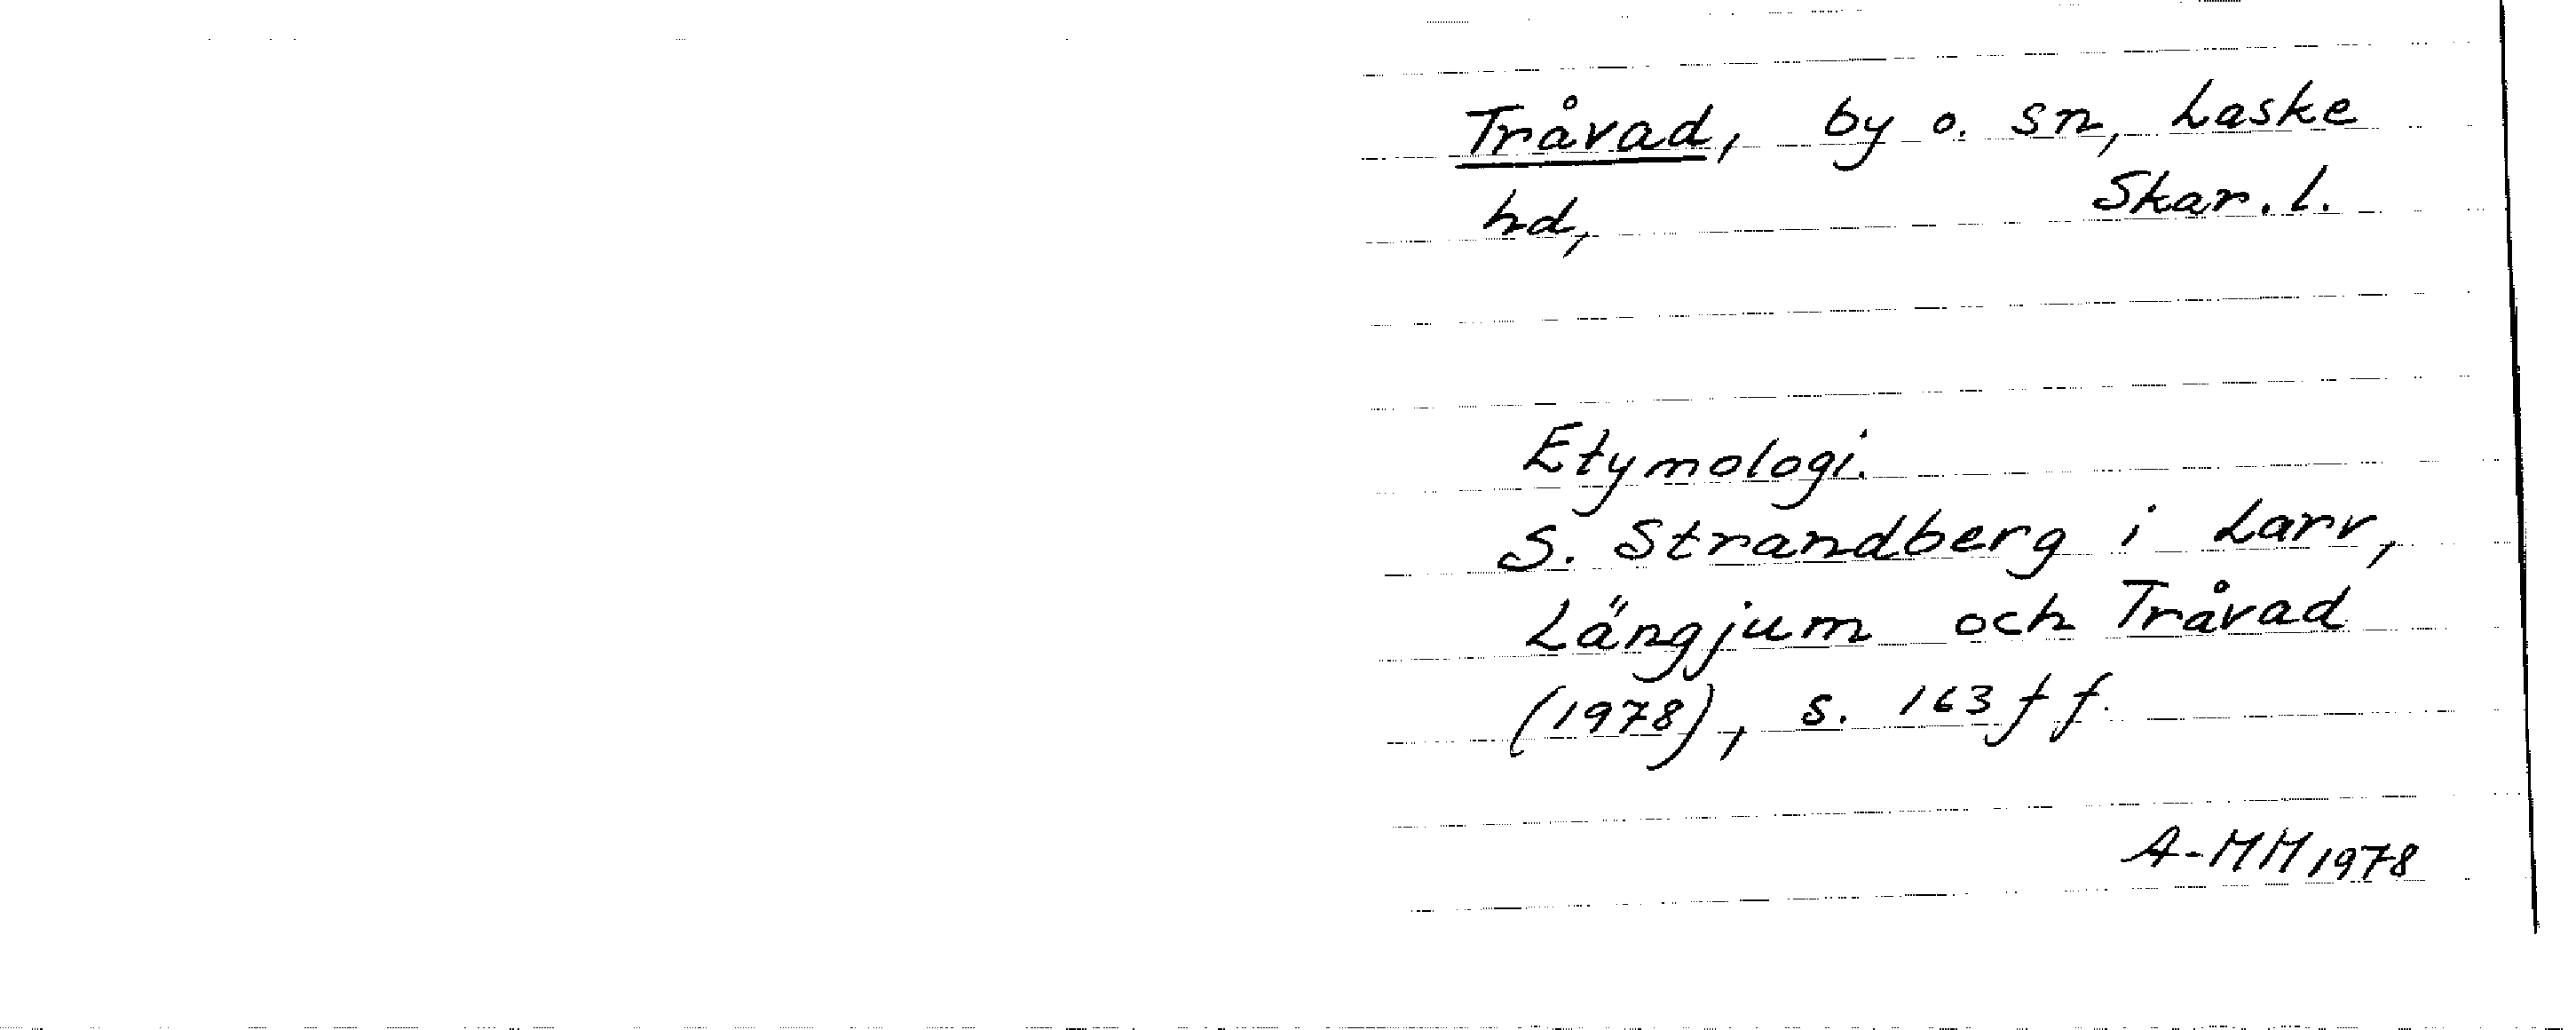 Tråvad, by o. sn, Laske
hd, Skar. l.
Etymologi.
S. Strandberg i Larv,
Längjum och Tråvad
(1978), s. 163 ff.
A-MM 1978